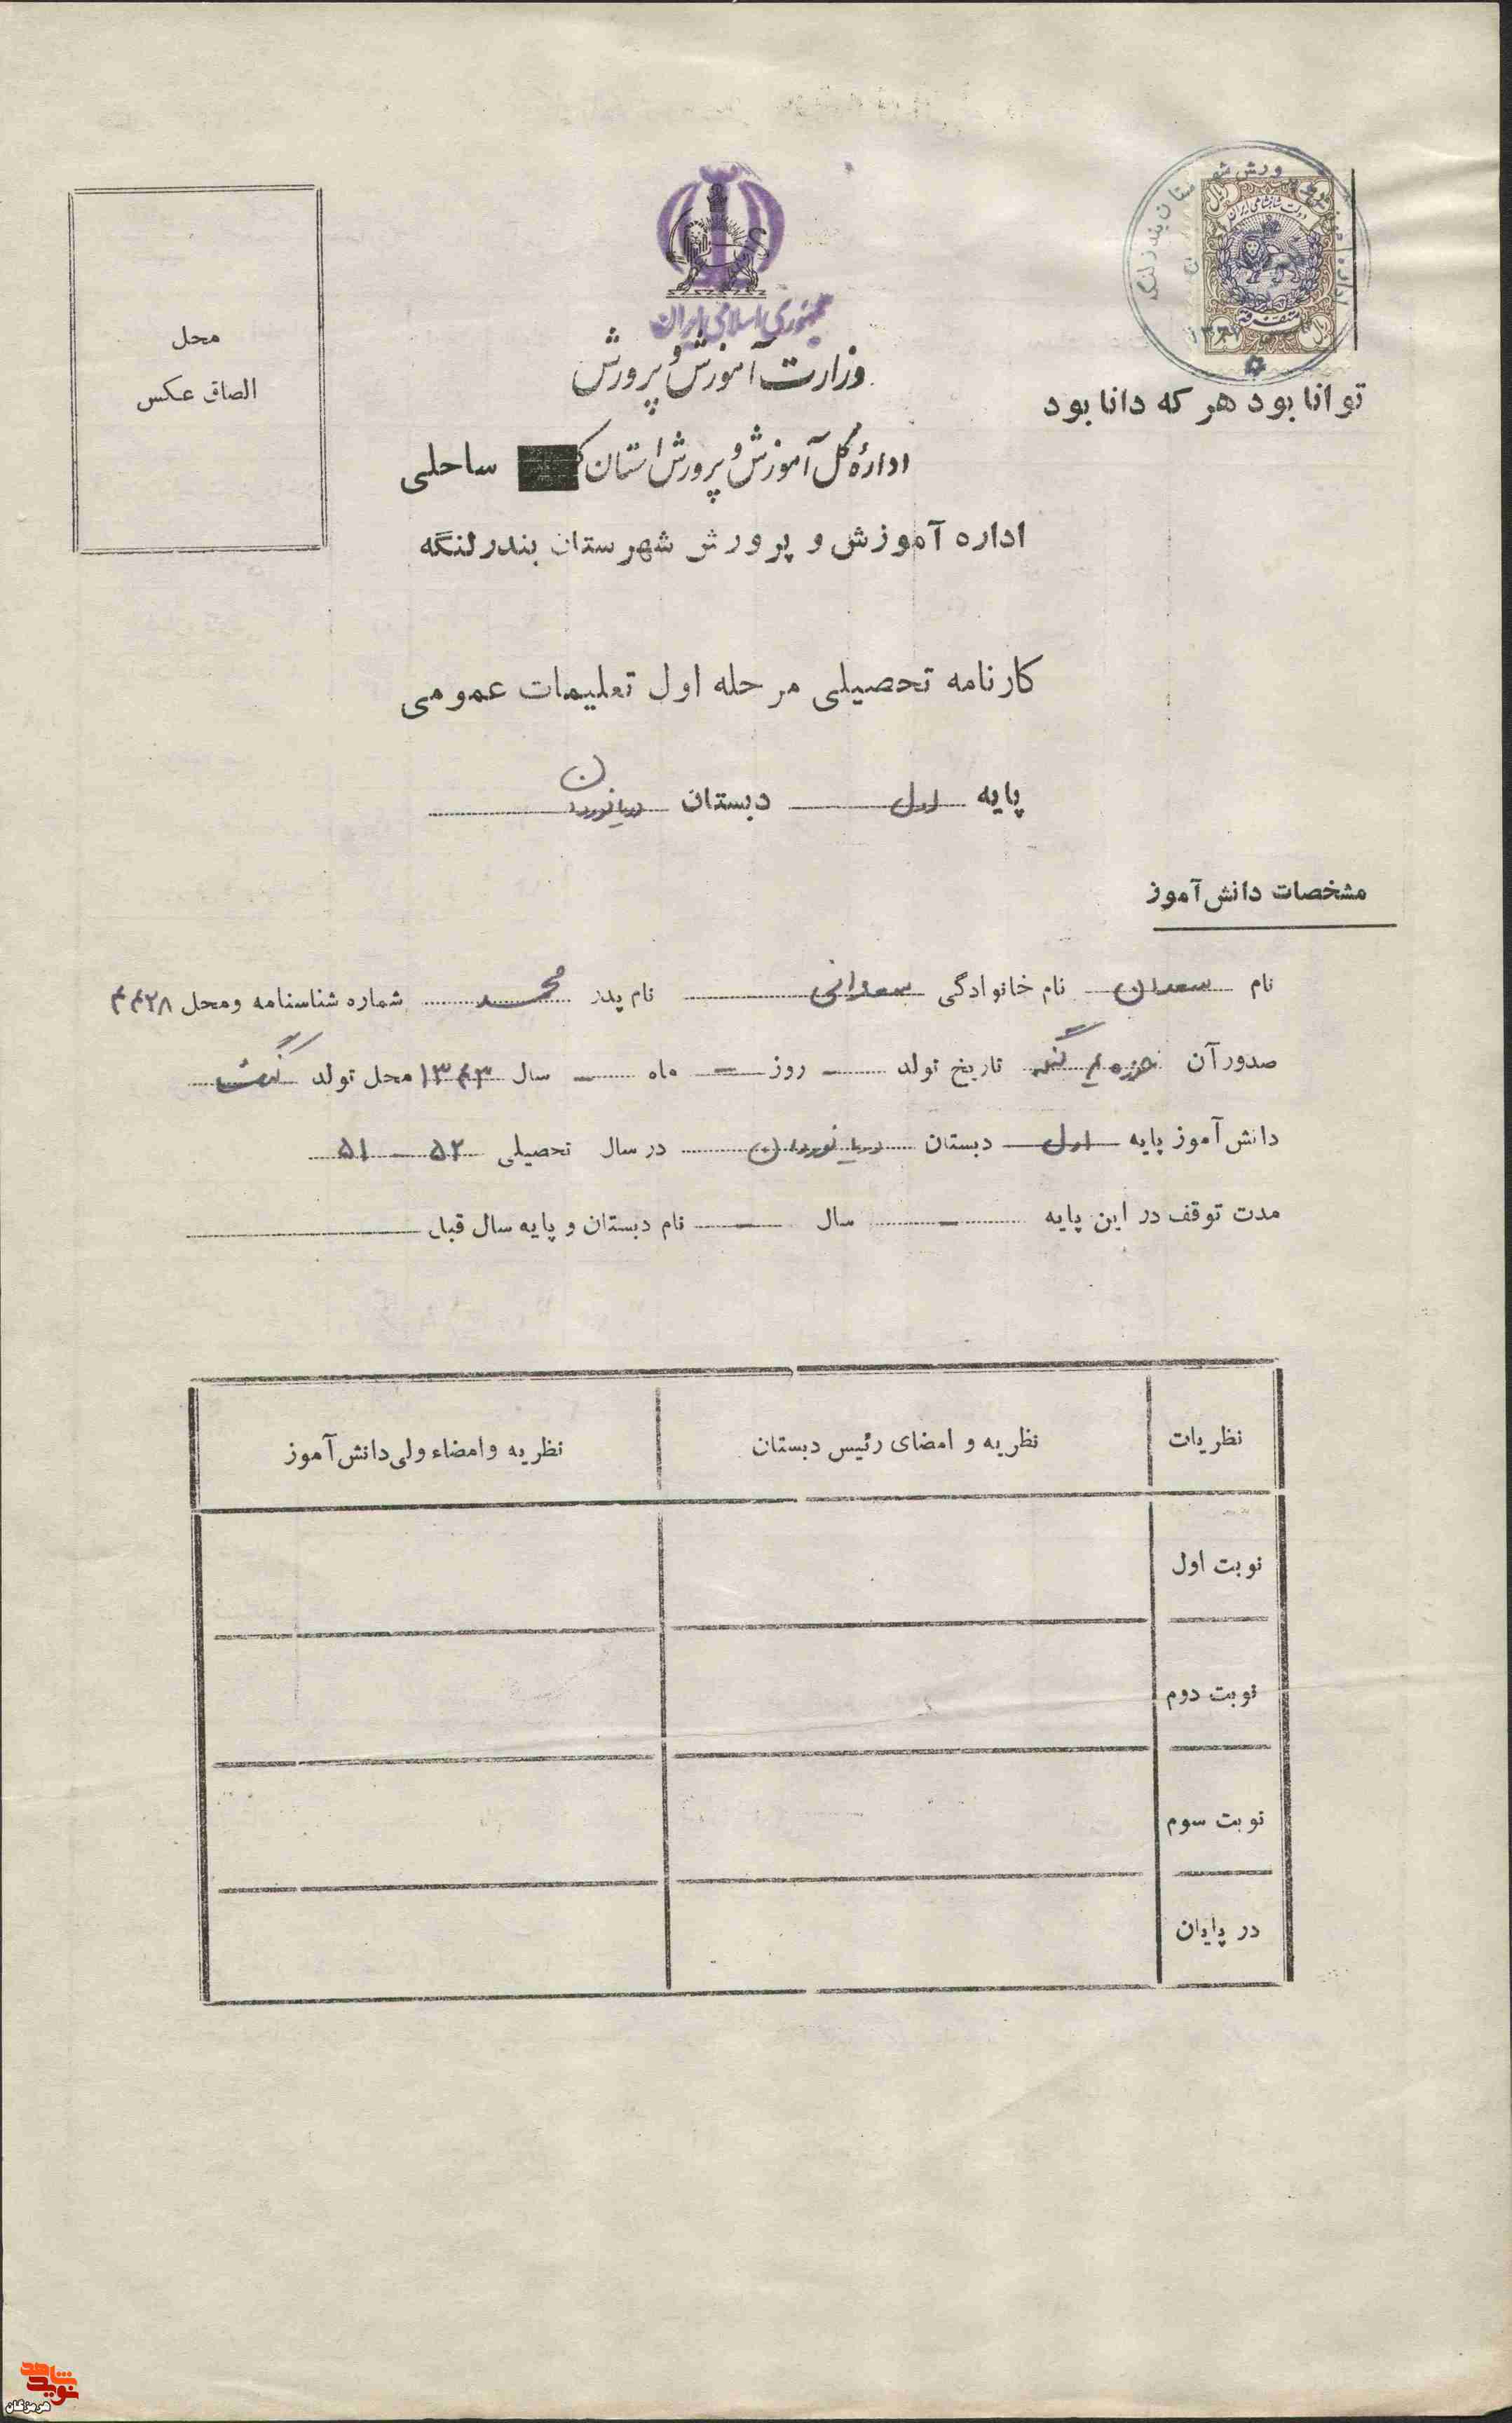 اداره آموزش و پرورش شهرستان بندرلنگه
دولت شاهنشاهی ایران
متفرقه
ریال
جمهوری اسلامی ایران
وزارت آموزش و پرورش
توانا بود هر که دانا بود
محل
الصاق عکس
ادارهٔ کل آموزش و پرورش استان ساحلی
اداره آموزش و پرورش شهرستان بندرلنگه
کارنامه تحصیلی مرحله اول تعلیمات عمومی
پایه اول دبستان دریانوردان
مشخصات دانش‌آموز
نام سعدان نام خانوادگی سعدانی نام پدر محمد شماره شناسنامه ومحل ۴۴۲۸
صدور آن حوزه ۴ لنگه تاریخ تولد - روز - ماه - سال ۱۳۴۳ محل تولد گنگ
دانش‌آموز پایه اول دبستان دریانوردان در سال تحصیلی ۵۲ - ۵۱
مدت توقف در این پایه - سال - نام دبستان و پایه سال قبل
نظریات نظریه و امضای رئیس دبستان نظریه و امضاء ولی دانش‌آموز
نوبت اول
نوبت دوم
نوبت سوم
در پایان
نوید شاهد
هرمزگان